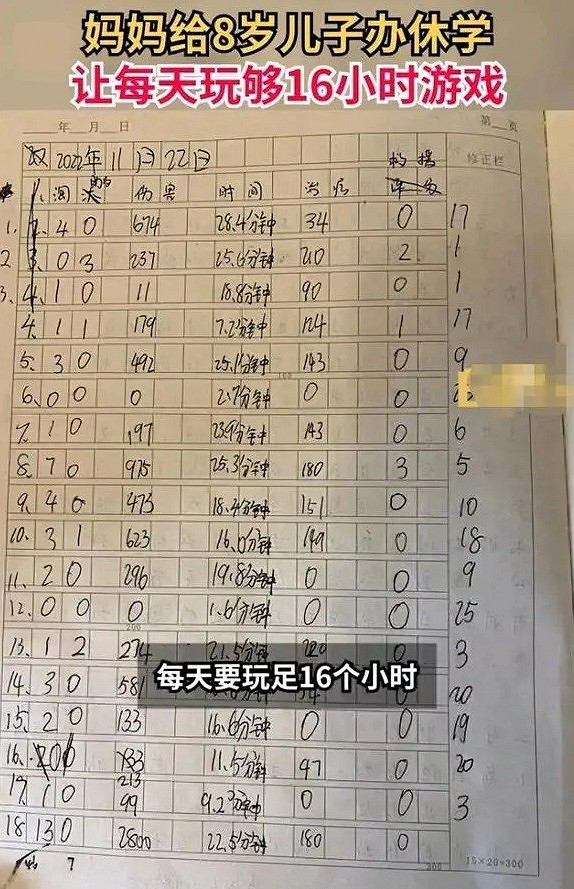 妈妈给8岁儿子办休学
让每天玩够16小时游戏
年 月 日 第 页
双 2022年11月22日 修正栏
淘汰 助攻 伤害 时间 治疗 救援
1. 4 0 674 28.4分钟 34 0 17
2 0 3 237 25.6分钟 210 2 1
3. 1 0 11 18.8分钟 90 0 1
4. 1 1 179 7.2分钟 124 1 17
5. 3 0 492 25.1分钟 143 0 9
6. 0 0 0 2.7分钟 0 0
7. 1 0 197 23.9分钟 143 0 6
8. 7 0 975 25.3分钟 180 3 5
9. 4 0 473 18.4分钟 151 0 10
10. 3 1 623 16.0分钟 149 0 18
11. 2 0 296 19.8分钟 0 0 9
12. 0 0 0 1.6分钟 0 0 25
200
13. 1 2 274 21.5分钟 220 0 3
每天要玩足16个小时
14. 3 0 581 20
15. 2 0 133 16.6分钟 0 0 19
16. 133 11.5分钟 47 0 20
213
17. 1 0 99 9.2分钟 0 0 3
18 13 0 2800 22.5分钟 180 0
7
300 15×20=300